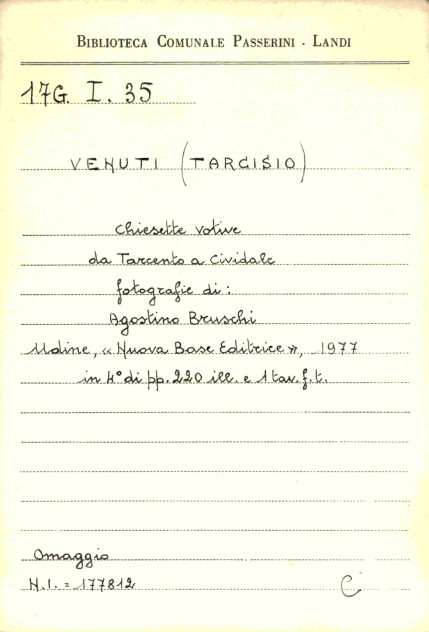 BIBLIOTECA COMUNALE PASSERINI - LANDI
17G. I. 35
VENUTI (TARCISIO)
Chiesette votive
da Tarcento a Cividale
fotografie di:
Agostino Bruschi
Udine, « Nuova Base Editrice », 1977
in 4° di pp. 220 ill. e 1 tav. f. t.
Omaggio
N. I. = 177812
C